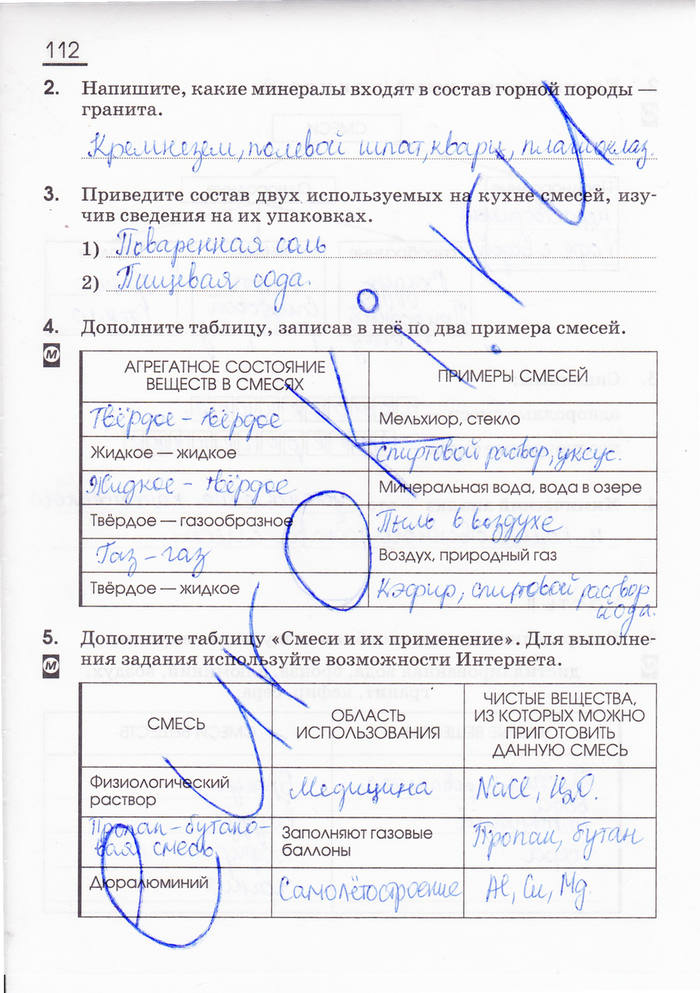 112
2. Напишите, какие минералы входят в состав горной породы —
гранита.
Кремнезем, полевой шпат, кварц, плагиоклаз.
3. Приведите состав двух используемых на кухне смесей, изу-
чив сведения на их упаковках.
1) Поваренная соль
2) Пищевая сода.
4. Дополните таблицу, записав в неё по два примера смесей.
М
АГРЕГАТНОЕ СОСТОЯНИЕ
ВЕЩЕСТВ В СМЕСЯХ
ПРИМЕРЫ СМЕСЕЙ
Твёрдое - твёрдое
Мельхиор, стекло
Жидкое — жидкое
Спиртовой раствор, уксус.
Жидкое - твёрдое
Минеральная вода, вода в озере
Твёрдое — газообразное
Пыль в воздухе
Газ - газ
Воздух, природный газ
Твёрдое — жидкое
Кэфир, спиртовой раствор
йода.
5. Дополните таблицу «Смеси и их применение». Для выполне-
ния задания используйте возможности Интернета.
М
СМЕСЬ
ОБЛАСТЬ
ИСПОЛЬЗОВАНИЯ
ЧИСТЫЕ ВЕЩЕСТВА,
ИЗ КОТОРЫХ МОЖНО
ПРИГОТОВИТЬ
ДАННУЮ СМЕСЬ
Физиологический
раствор
Медицина
NaCl, H₂O.
Пропан-бутано-
вая смесь
Заполняют газовые
баллоны
Пропан, бутан
Дюралюминий
Самолётостроение
Al, Cu, Mg